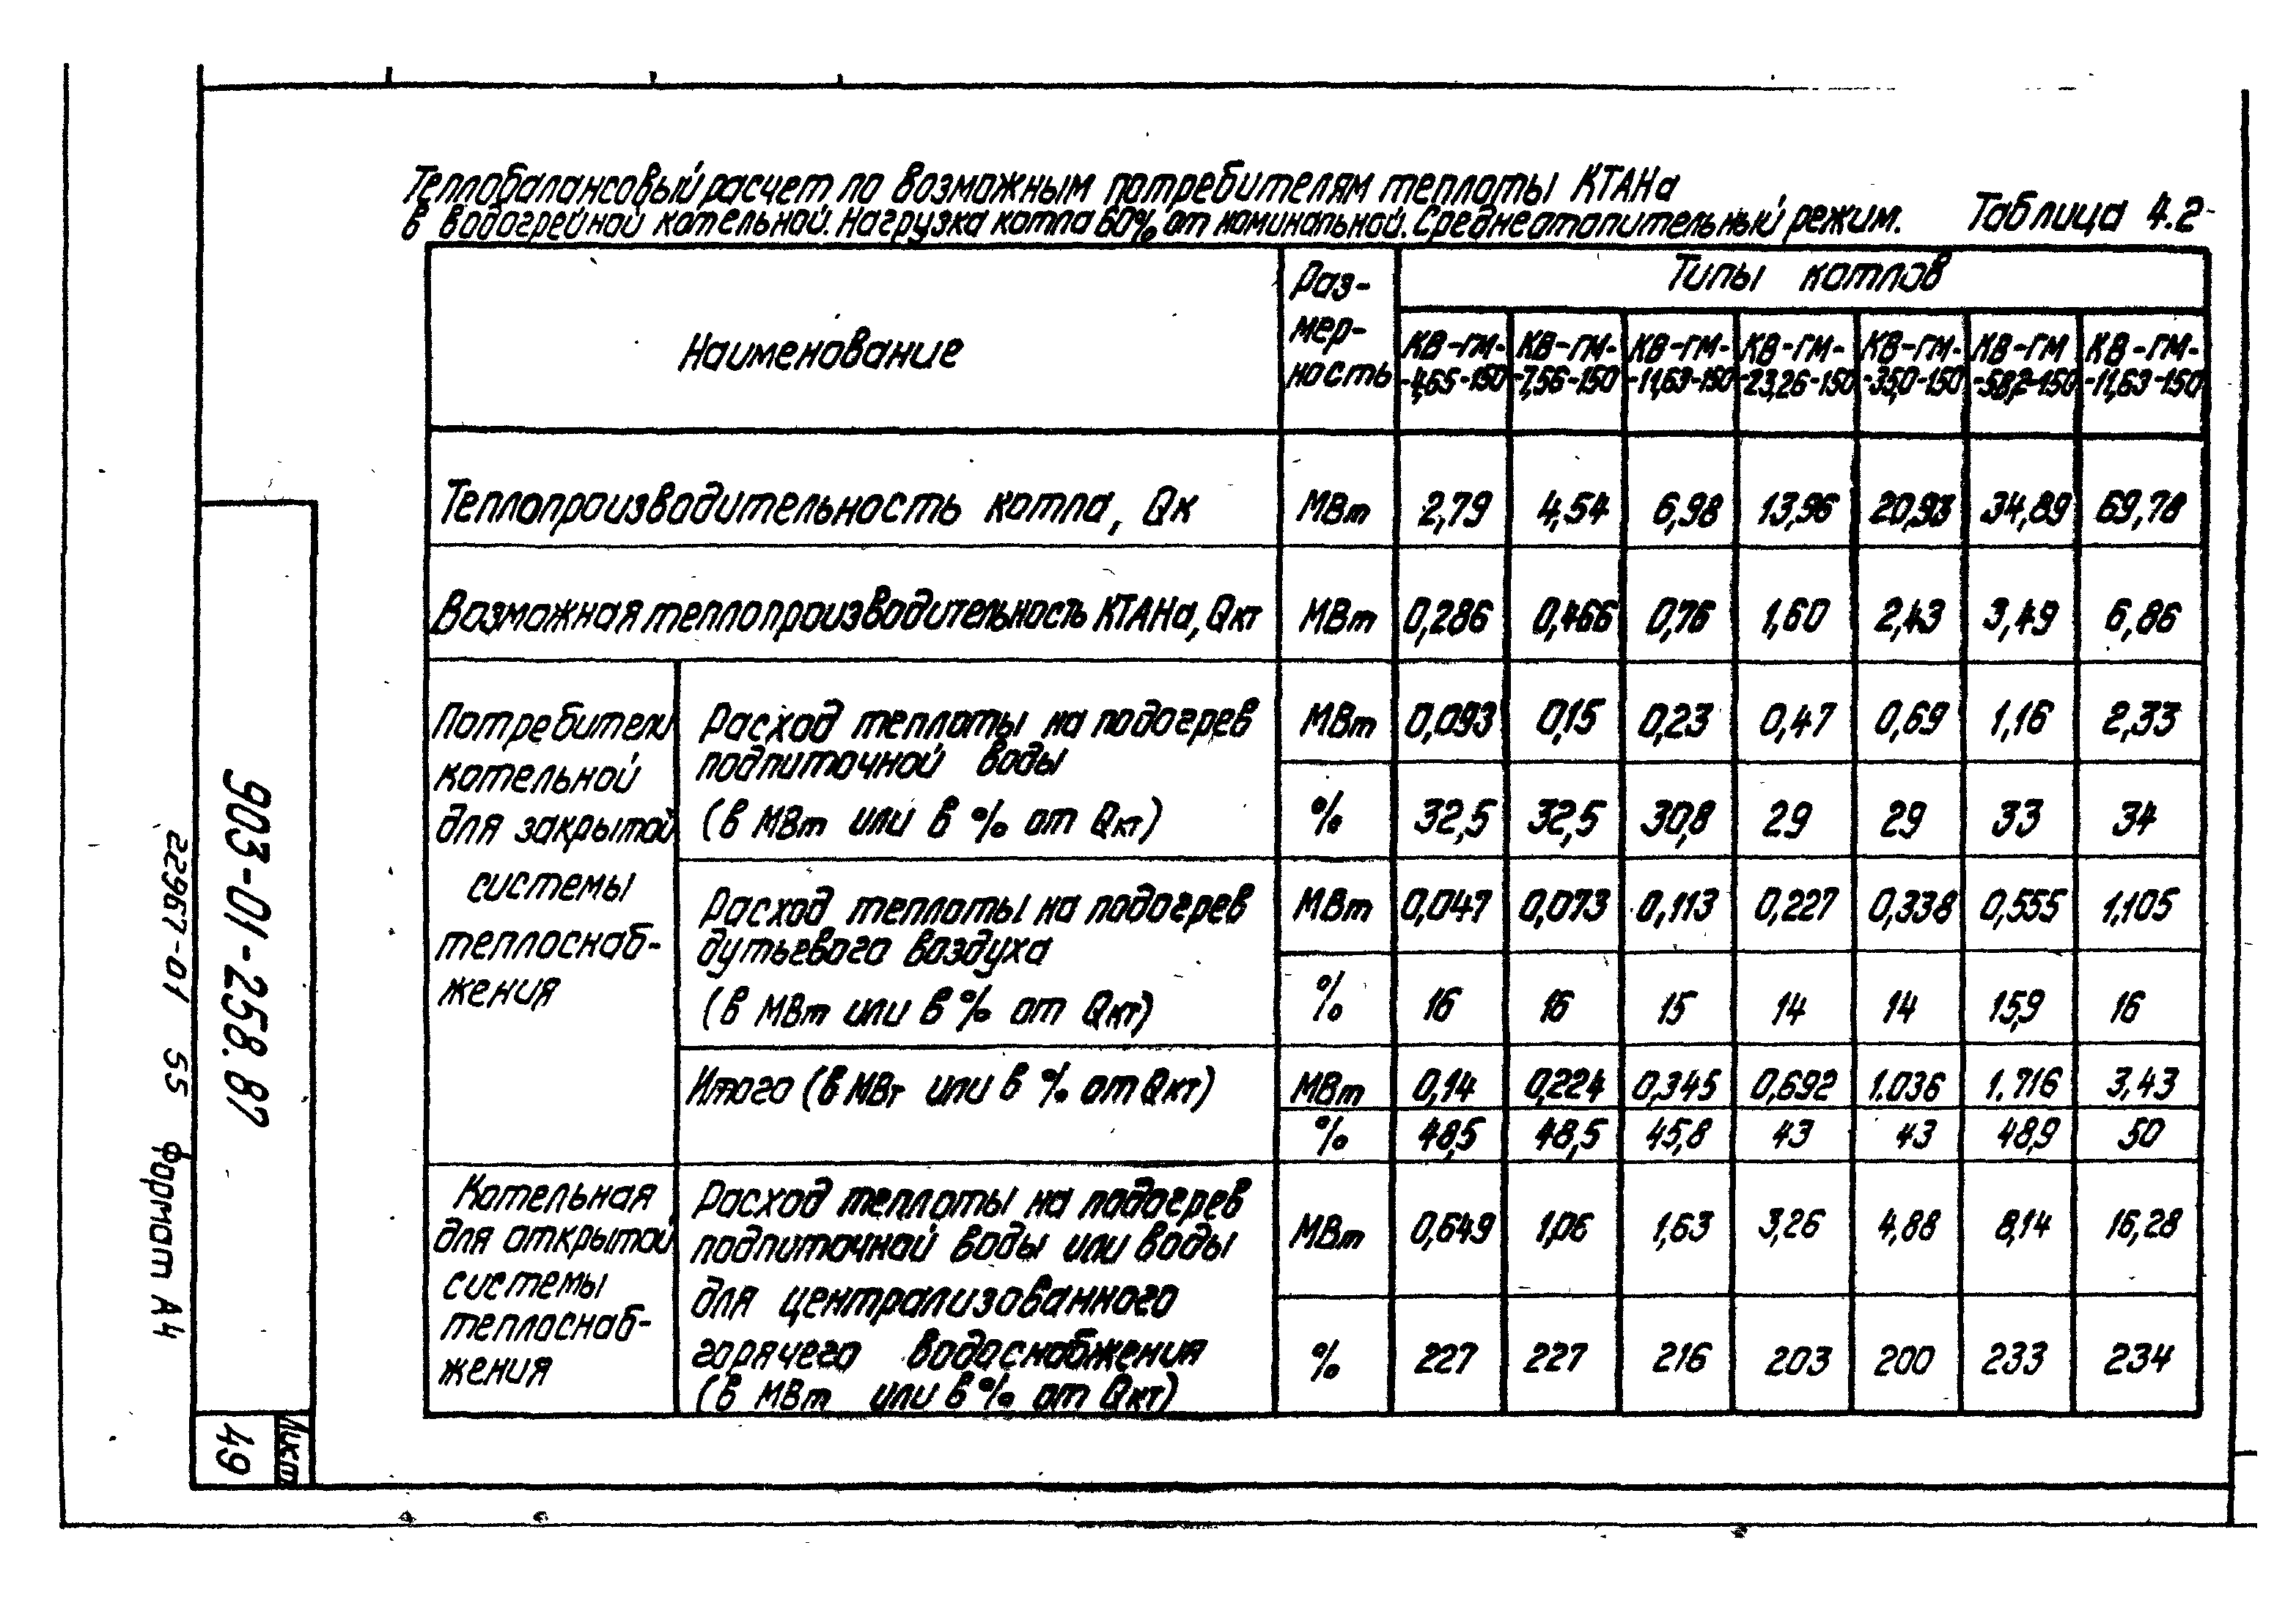 Теплобалансовый расчет по возможным потребителям теплоты КТАНа
в водогрейной котельной. Нагрузка котла 60% от номинальной. Среднеотопительный режим. Таблица 4.2
Наименование
Раз-
мер-
ность
Типы котлов
КВ-ГМ- КВ-ГМ- КВ-ГМ- КВ-ГМ- КВ-ГМ- КВ-ГМ КВ-ГМ-
-4,65-150 -7,56-150 -11,63-150 -23,26-150 -35,0-150 -58,2-150 -11,63-150
Теплопроизводительность котла, Qк МВт 2,79 4,54 6,98 13,96 20,93 34,89 69,78
Возможная теплопроизводительность КТАНа, Qкт МВт 0,286 0,466 0,76 1,60 2,43 3,49 6,86
Потребители
котельной
для закрытой
системы
теплоснаб-
жения
Расход теплоты на подогрев
подпиточной воды
(в МВт или в % от Qкт)
МВт 0,093 0,15 0,23 0,47 0,69 1,16 2,33
% 32,5 32,5 30,8 29 29 33 34
Расход теплоты на подогрев
дутьевого воздуха
(в МВт или в % от Qкт)
МВт 0,047 0,073 0,113 0,227 0,338 0,555 1,105
% 16 16 15 14 14 15,9 16
Итого (в МВт или в % от Qкт) МВт 0,14 0,224 0,345 0,692 1.036 1.716 3,43
% 48,5 48,5 45,8 43 43 48,9 50
Котельная
для открытой
системы
теплоснаб-
жения
Расход теплоты на подогрев
подпиточной воды или воды
для централизованного
горячего водоснабжения
(в МВт или в % от Qкт)
МВт 0,649 1,06 1,63 3,26 4,88 8,14 16,28
% 227 227 216 203 200 233 234
903-01-258.87
22967-01 55 Формат А4
Лист
49